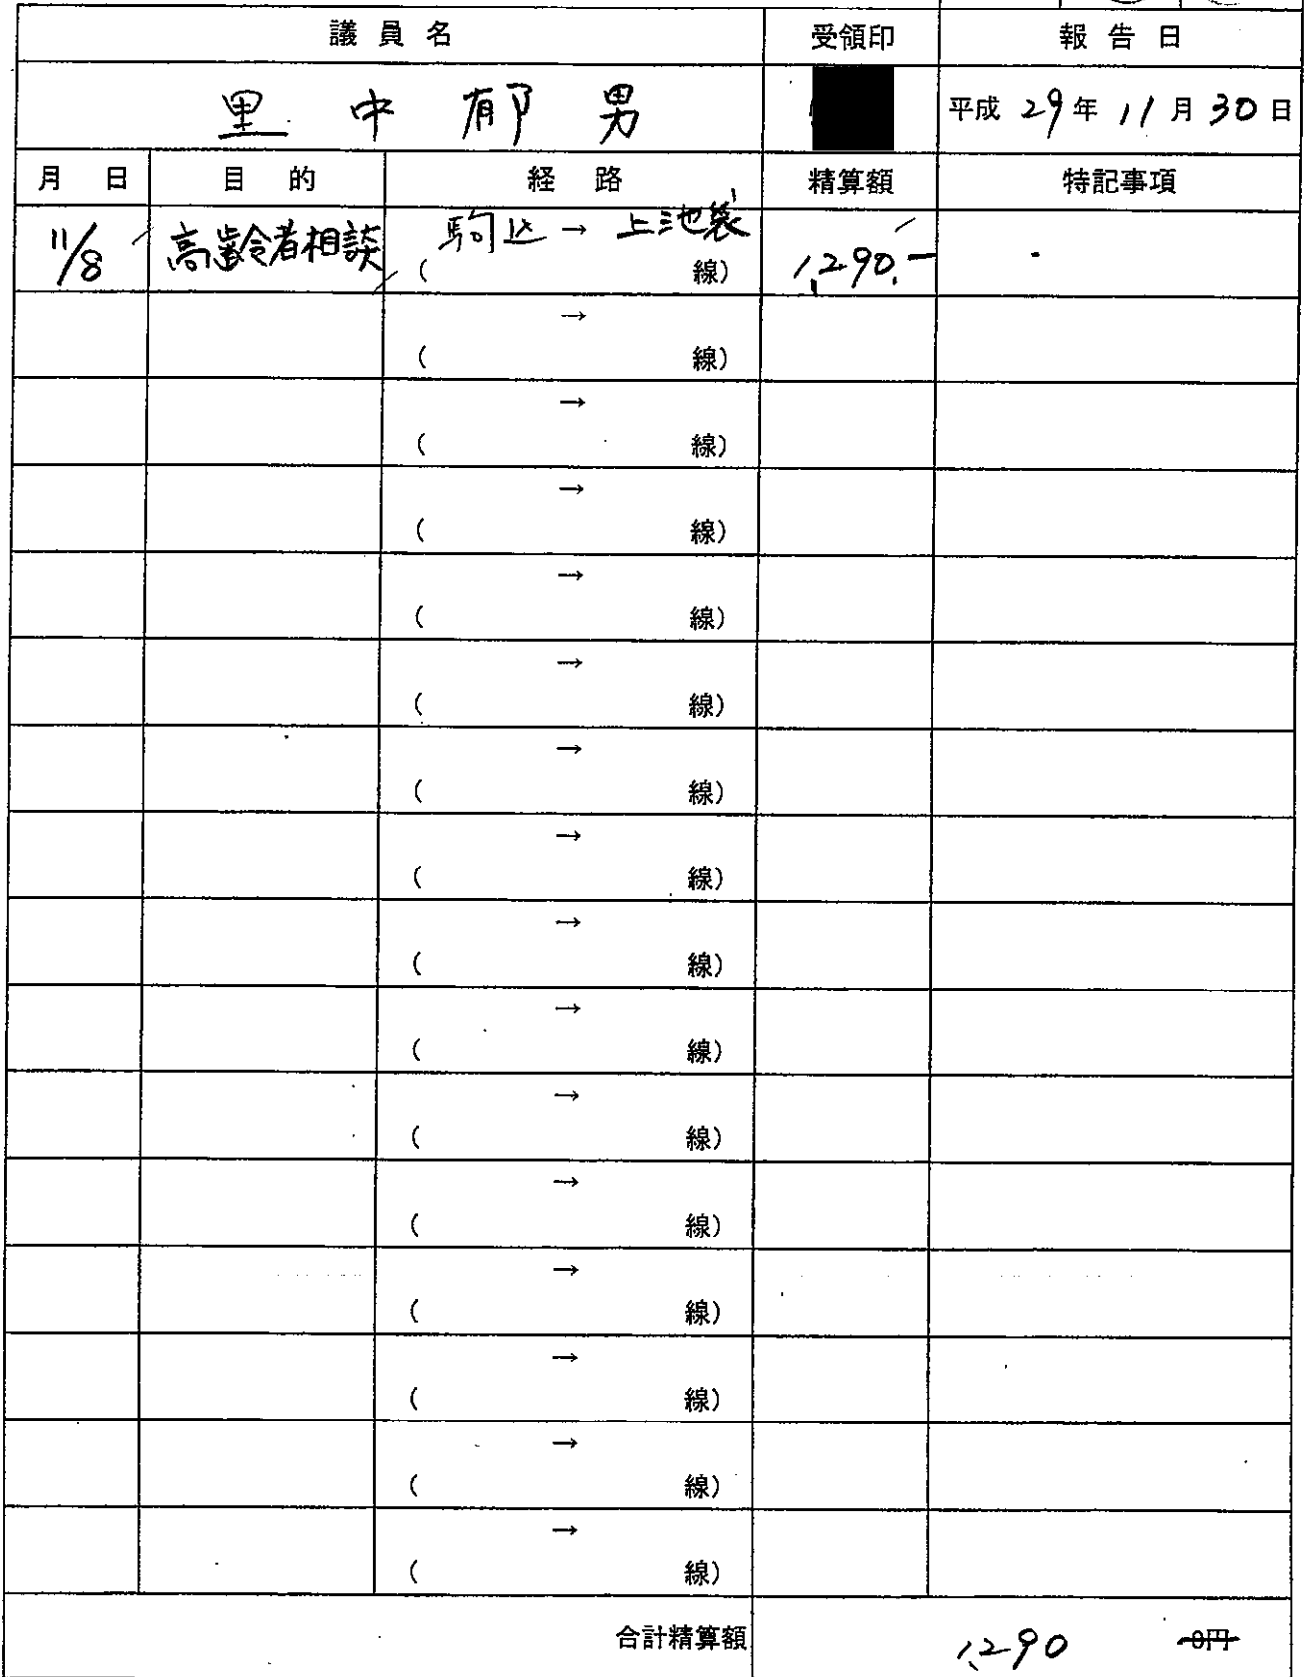 議員名 受領印 報告日
里中郁男 平成29年11月30日
月日 目的 経路 精算額 特記事項
11/8 高齢者相談 駒込 → 上池袋 1,290.-
( 線)
→
( 線)
→
( 線)
→
( 線)
→
( 線)
→
( 線)
→
( 線)
→
( 線)
→
( 線)
→
( 線)
→
( 線)
→
( 線)
→
( 線)
→
( 線)
→
( 線)
→
( 線)
合計精算額 1,290 0円